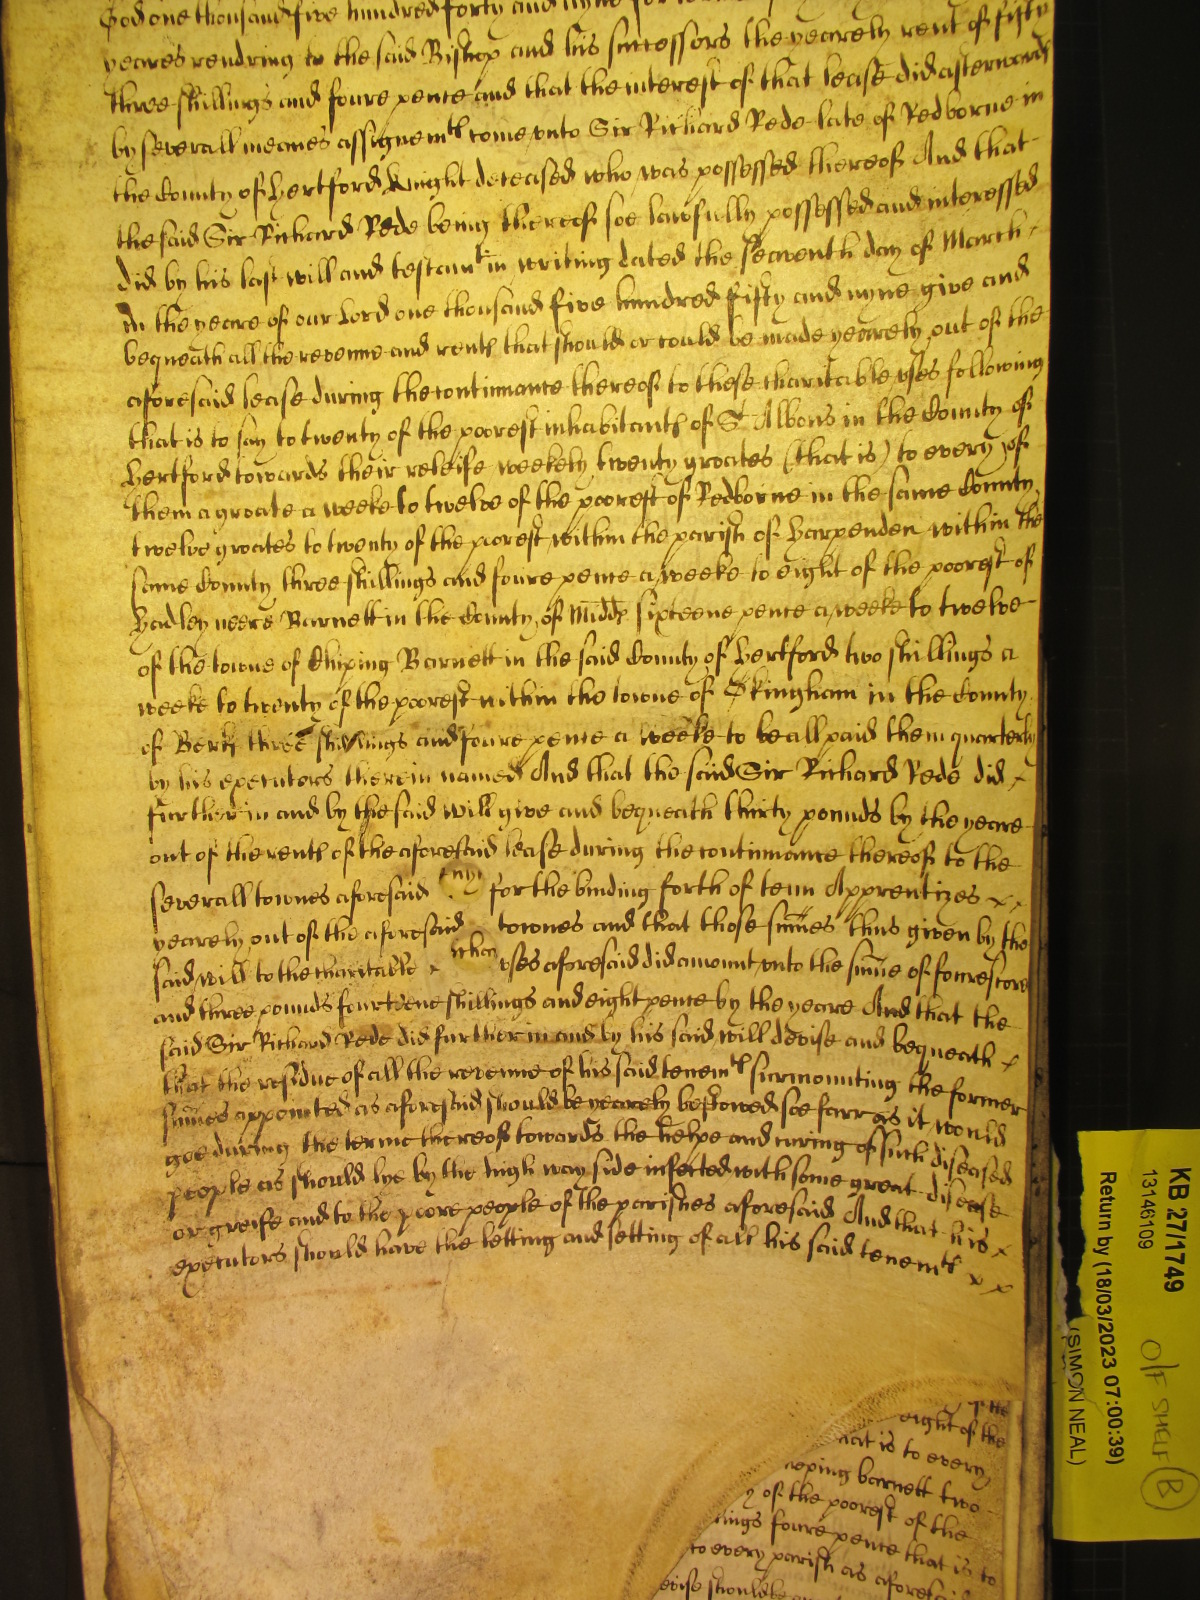 God one thousand five hundred forty and nyne for
yeares rendring to the said Bishop and his successors the yearely rent of fifty
three shillings and foure pence and that the interest of that lease did afterwards
by severall meanes assignemts come unto Sir Richard Rede late of Redborne in
the County of Hertford Knight deceased who was possessed thereof And that
the said Sir Richard Rede being thereof soe lawfully possessed and interessed
did by his last will and testamt in writing dated the seaventh day of March
in the yeare of our Lord one thousand five hundred fifty and nyne give and
bequeath all the revenue and rents that should or could be made yearely out of the
aforesaid lease during the continuance thereof to these charitable uses following
that is to say to twenty of the poorest inhabitants of St Albons in the County of
Hertford towards their releife weekely twenty groates (that is) to every of
them a groate a weeke to twelve of the poorest of Redborne in the same County
twelve groates to twenty of the poorest within the parish of Harpenden within the
same County three shillings and foure pence a weeke to eight of the poorest of
Hadley neere Barnett in the County of Midd sixteene pence a weeke to twelve
of the towne of Chiping Barnett in the said County of Hertford two shillings a
weeke to twenty of the poorest within the towne of Okingham in the County
of Berks three shillings and foure pence a weeke to be all paid them quarterly
by his executors therein named And that the said Sir Richard Rede did
further in and by the said will give and bequeath thirty pounds by the yeare
out of the rents of the aforesaid lease during the continuance thereof to the
severall townes aforesaid for the binding forth of tenn Apprentizes
yearely out of the aforesaid townes and that those summes thus given by the
said will to the charitable uses aforesaid did amount unto the summe of fourescore
and three pounds fourteene shillings and eight pence by the yeare And that the
said Sir Richard Rede did further in and by his said will devise and bequeath
that the residue of all the revenue of his said tenemts surmounting the former
summes appointed as aforesaid should be yearely bestowed soe farr as it would
goe during the terme thereof towards the helpe and curing of such diseased
people as should lye by the high way side infected with some great disease
or greife and to the poore people of the parishes aforesaid And that his
executors should have the letting and setting of all his said tenemts
of the
eight of the
that is to every
cheping barnett two
of the poorest of the
foure pence that is to
to every parish as aforesaid
KB 27/1749
13146109
Return by (18/03/2023 07:00:39)
(SIMON NEAL)
O/F SHELF B